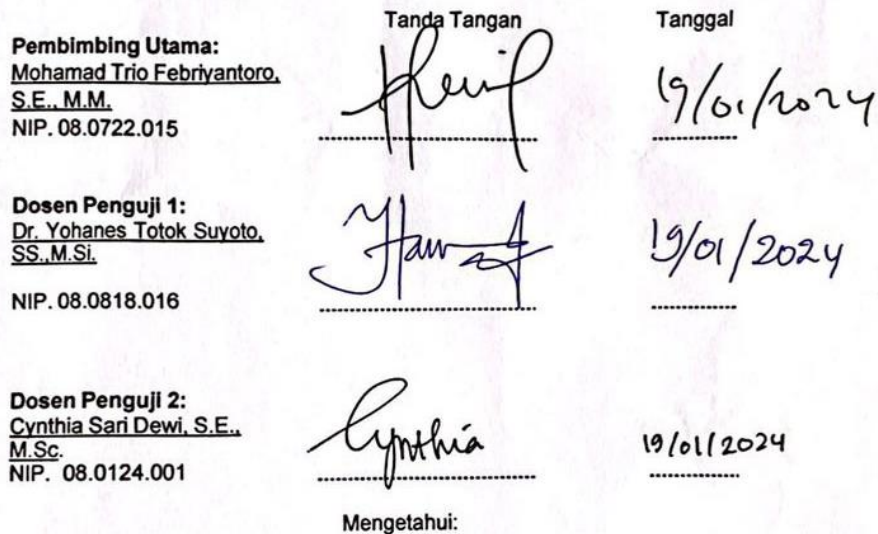 Tanda Tangan Tanggal
Pembimbing Utama:
Mohamad Trio Febriyantoro,
S.E., M.M.
NIP. 08.0722.015
19/01/2024
Dosen Penguji 1:
Dr. Yohanes Totok Suyoto,
SS.,M.Si.
19/01/2024
NIP. 08.0818.016
Dosen Penguji 2:
Cynthia Sari Dewi, S.E.,
M.Sc.
NIP. 08.0124.001
Cynthia 19/01/2024
Mengetahui: